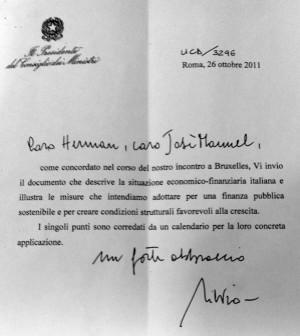 Il Presidente
del Consiglio dei Ministri
UCD/3296
Roma, 26 ottobre 2011
Caro Herman, caro José Manuel,
come concordato nel corso del nostro incontro a Bruxelles, Vi invio
il documento che descrive la situazione economico-finanziaria italiana e
illustra le misure che intendiamo adottare per una finanza pubblica
sostenibile e per creare condizioni strutturali favorevoli alla crescita.
I singoli punti sono corredati da un calendario per la loro concreta
applicazione.
un forte abbraccio
Silvio